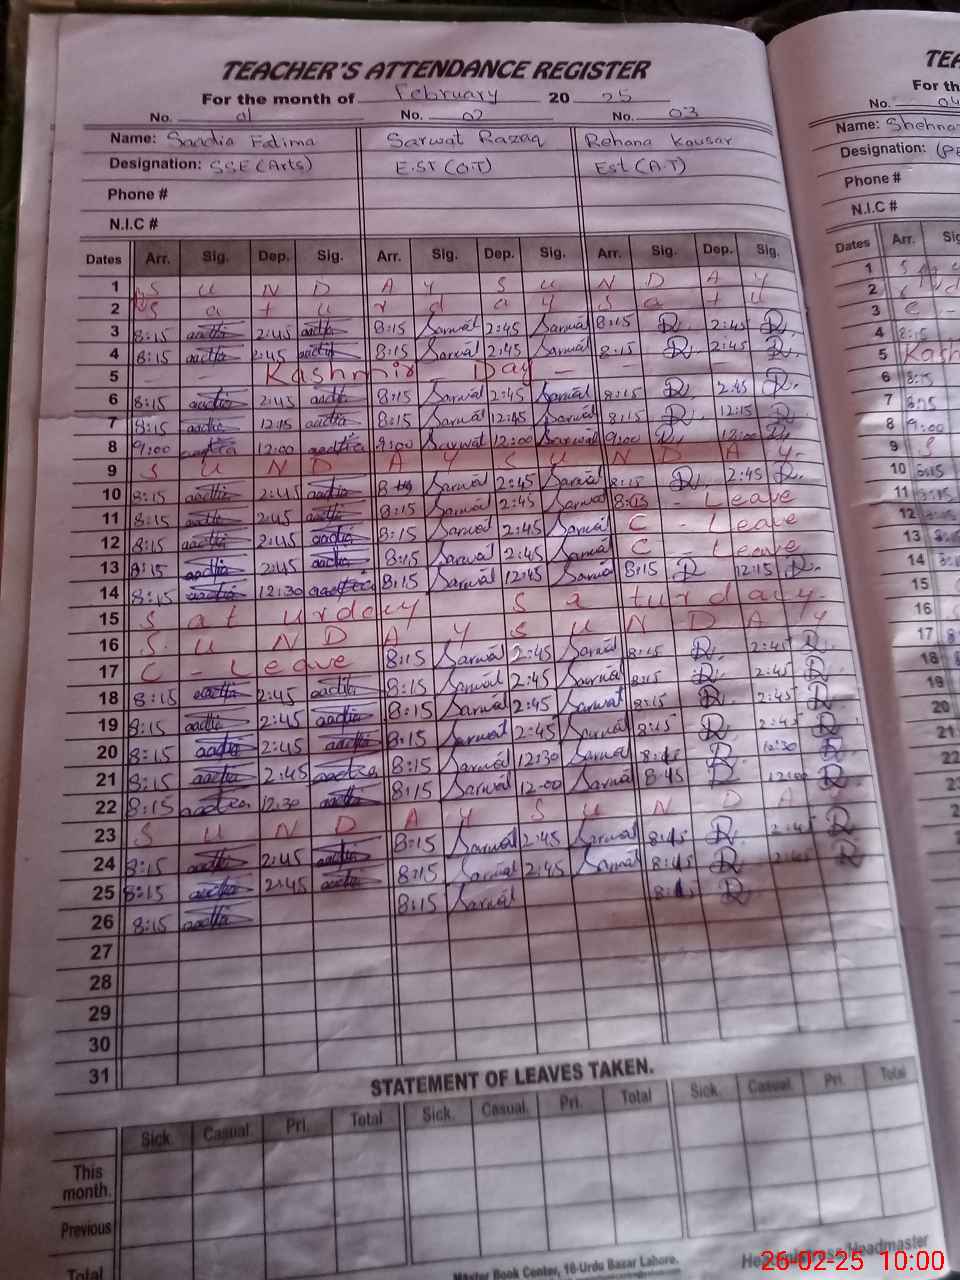 TEACHER'S ATTENDANCE REGISTER
For the month of February 20 25
No. 01 No. 02 No. 03
Name: Saadia Fatima Sarwat Razaq Rehana Kousar
Designation: SSE (Arts) E.ST (O.T) Est (A.T)
Phone #
N.I.C #
Dates Arr. Sig. Dep. Sig. Arr. Sig. Dep. Sig. Arr. Sig. Dep. Sig.
1 S U N D A Y S U N D A Y
2 S a t u r d a y S a t u
3 8:15 2:45 8:15 Sarwat 2:45 Sarwat 8:15 2:45
4 8:15 2:45 8:15 Sarwat 2:45 Sarwat 8:15 2:45
5 - - Kashmir - Day -
6 8:15 2:45 8:15 Sarwat 2:45 Sarwat 8:15 2:45
7 8:15 12:15 8:15 Sarwat 12:45 Sarwat 8:15 12:15
8 9:00 12:00 9:00 Sarwat 12:00 Sarwat 9:00 12:00
9 S U N D A Y S U N D A Y
10 8:15 2:45 Sarwat 2:45 Sarwat 8:15 2:45
11 8:15 2:45 8:15 Sarwat 2:45 Sarwat - Leave
12 8:15 2:45 8:15 Sarwat 2:45 Sarwat C - Leave
13 8:15 2:45 8:15 Sarwat 2:45 Sarwat C - Leave
14 8:15 12:30 8:15 Sarwat 12:45 Sarwat 8:15 12:15
15 Saturday Saturday
16 S U N D A Y S U N D A Y
17 C - Leave 8:15 Sarwat 2:45 Sarwat 8:15 2:45
18 8:15 2:45 8:15 Sarwat 2:45 Sarwat 8:15 2:45
19 8:15 2:45 8:15 Sarwat 2:45 Sarwat 8:15 2:45
20 8:15 2:45 8:15 Sarwat 2:45 Sarwat 8:15 2:45
21 8:15 2:45 8:15 Sarwat 12:30 Sarwat 12:30
22 8:15 12:30 8:15 Sarwat 12:00 Sarwat 8:15 12:00
23 S U N D A Y S U N D A Y
24 8:15 2:45 8:15 Sarwat 2:45 Sarwat 8:15 2:45
25 8:15 2:45 8:15 Sarwat 2:45 Sarwat 8:15 2:45
26 8:15 8:15 Sarwat 8:15
27
28
29
30
31
STATEMENT OF LEAVES TAKEN.
Sick. Casual. Pri. Total Sick. Casual. Pri. Total Sick. Casual. Pri. Total
This month.
Previous
Total
Master Book Center, 16-Urdu Bazar Lahore.
Headmaster
For th
No. 04
Name: Shehna
Designation:
Phone #
N.I.C #
Dates Arr.
26-02-25 10:00